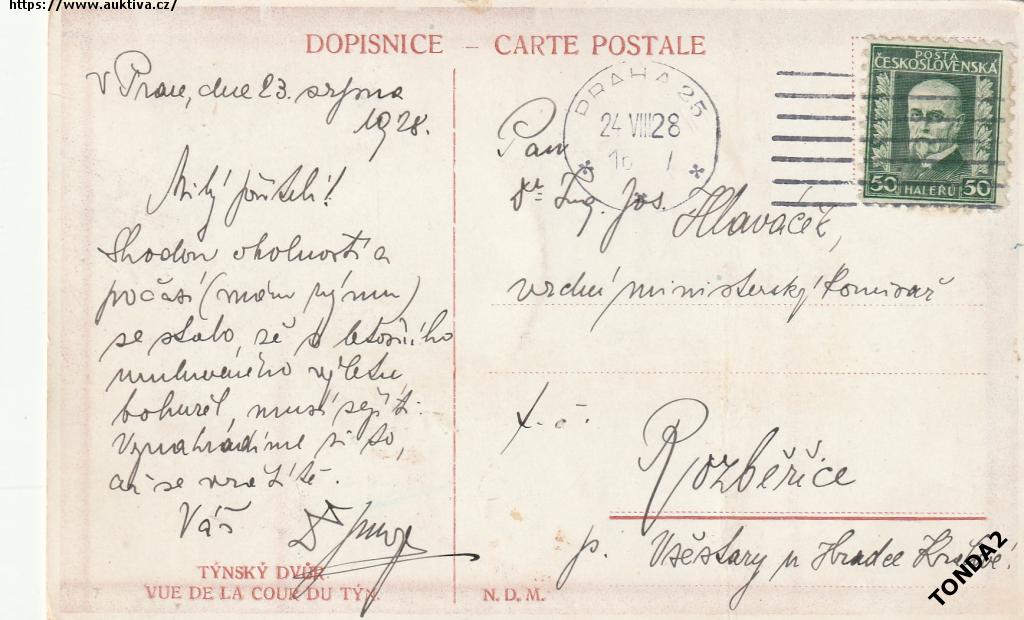 https://www.auktiva.cz/
DOPISNICE – CARTE POSTALE
V Praze, dne 23. srpna
1928.
Milý příteli!
Shodou okolností a
počasí (mám rýmu)
se stalo, že s letošního
umluveného výletu
bohužel, musí sejíti.
Vynahradíme si to,
až se vrátíte.
Váš
Dr
TÝNSKÝ DVŮR.
VUE DE LA COUR DU TÝN.
PRAHA 25
24 VIII 28
POŠTA
ČESKOSLOVENSKÁ
50 HALÉŘŮ 50
Pan
Dr Ing. Jos. Hlaváček,
vrchní ministerský komisař
t. č.
Rozběřice
p. Všestary u Hradce Králové.
N. D. M.
TONDA2